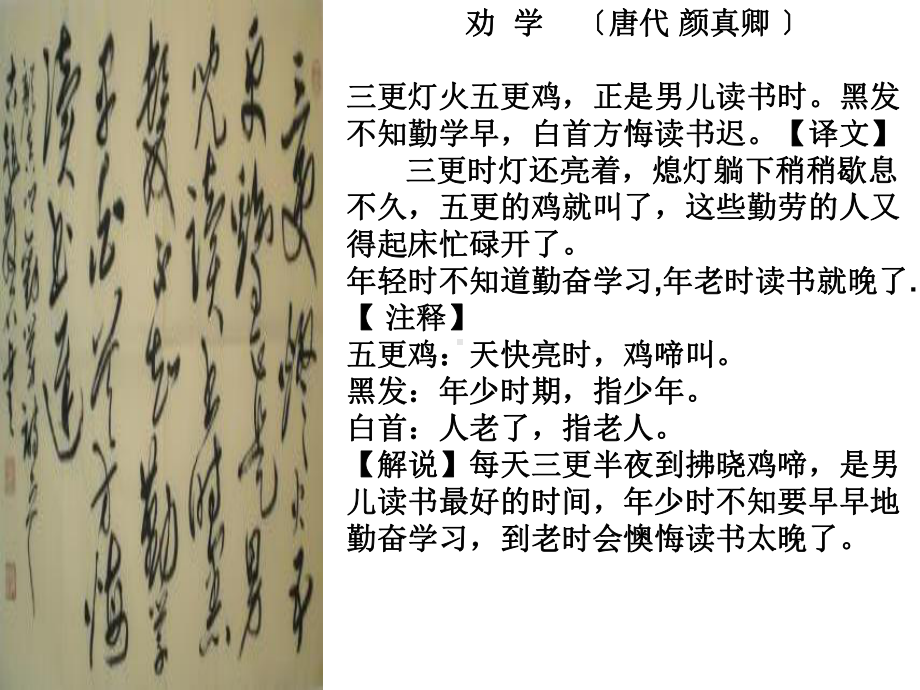 劝 学 〔唐代 颜真卿 〕
三更灯火五更鸡，正是男儿读书时。黑发
不知勤学早，白首方悔读书迟。【译文】
三更时灯还亮着，熄灯躺下稍稍歇息
不久，五更的鸡就叫了，这些勤劳的人又
得起床忙碌开了。
年轻时不知道勤奋学习,年老时读书就晚了.
【 注释】
五更鸡：天快亮时，鸡啼叫。
黑发：年少时期，指少年。
白首：人老了，指老人。
【解说】每天三更半夜到拂晓鸡啼，是男
儿读书最好的时间，年少时不知要早早地
勤奋学习，到老时会懊悔读书太晚了。
三更燈火五
更鷄正是男
兒讀書時黑
髮不知勤學
早白首方悔
讀書遲